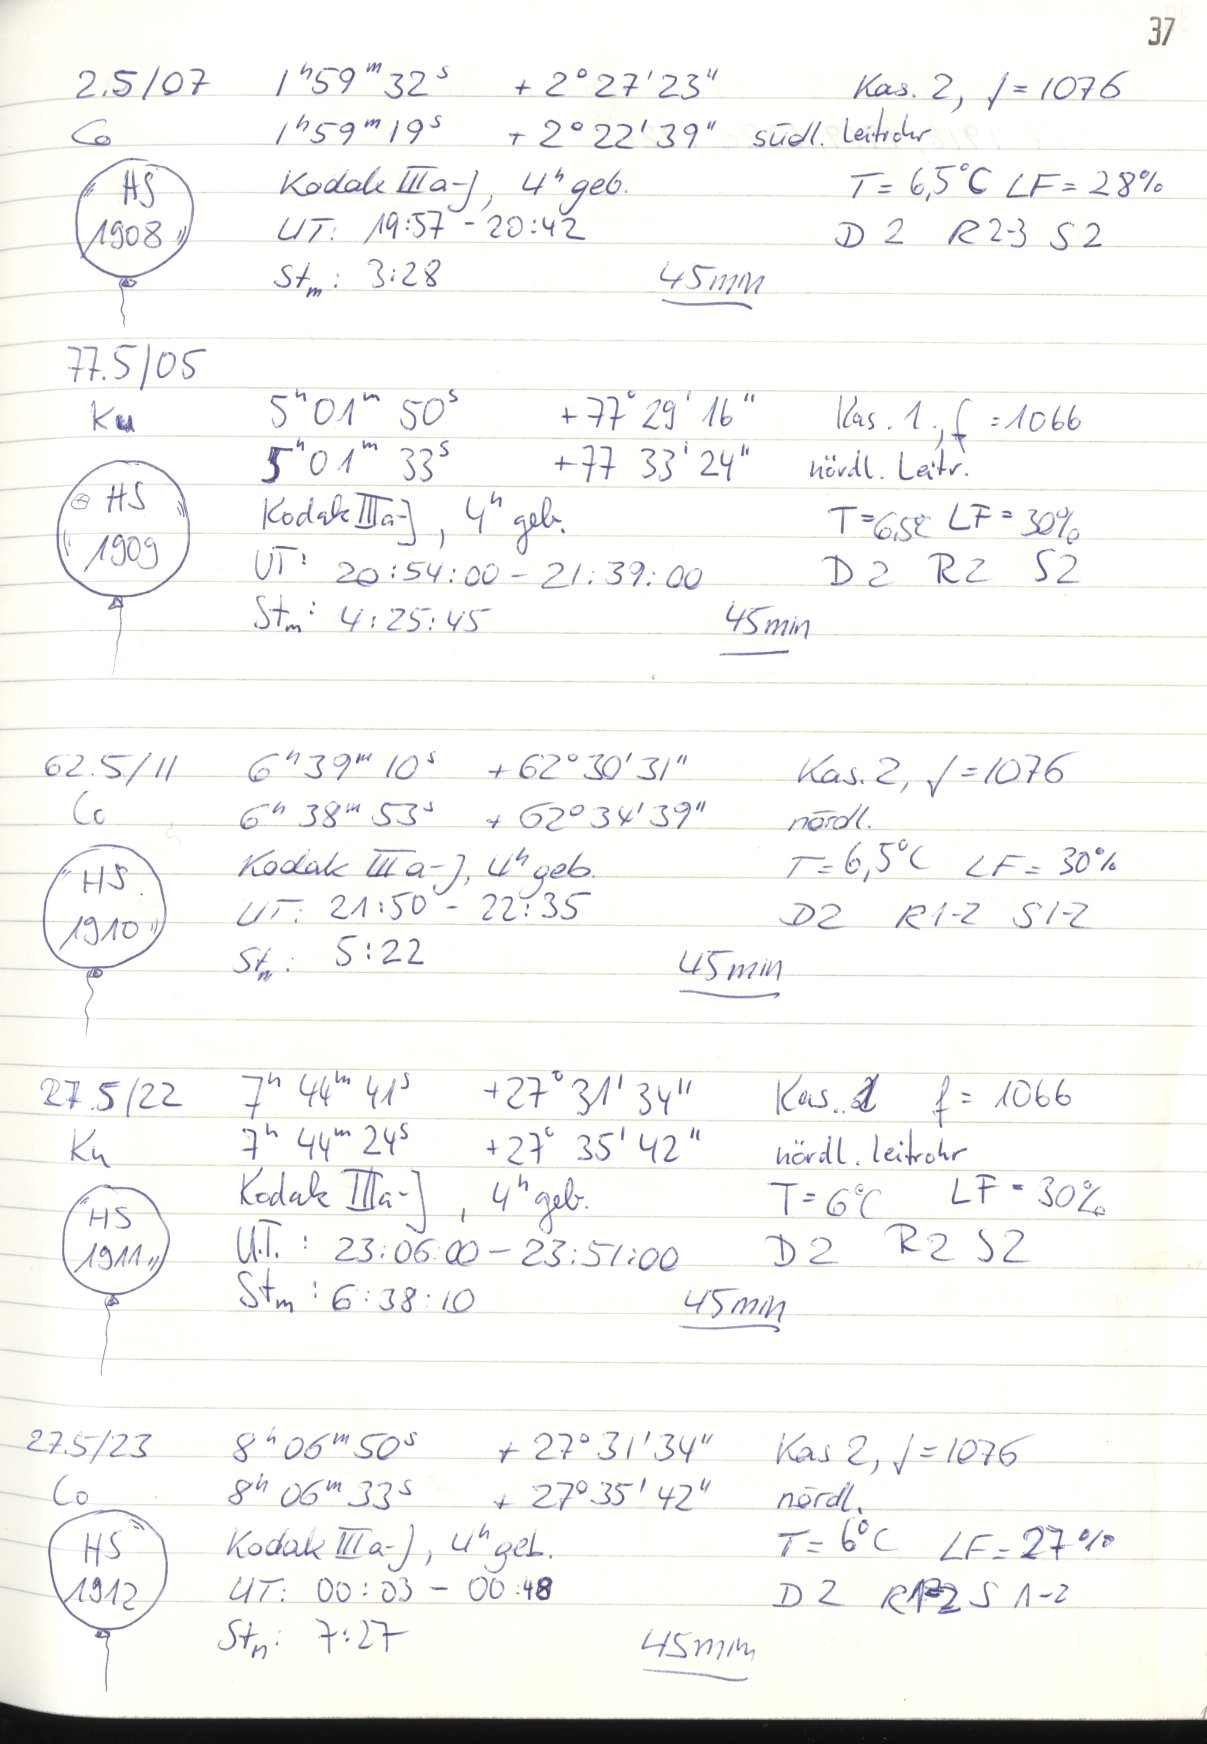 37
2.5/07 1ʰ59ᵐ32ˢ +2°27'23" Kas. 2, f=1076
Co 1ʰ59ᵐ19ˢ +2°22'39" südl. Leitrohr
HS 1908 Kodak IIIa-J, 4ʰ geb. T=6,5°C LF=28%
UT: 19:57 - 20:42 D2 R2-3 S2
Stₘ: 3:28 45min
77.5/05
Ku 5ʰ01ᵐ50ˢ +77°29'16" Kas. 1., f=1066
5ʰ01ᵐ33ˢ +77 33'24" nördl. Leitr.
HS 1909 Kodak IIIa-J, 4ʰ geb. T=6,5°C LF=30%
UT: 20:54:00 - 21:39:00 D2 R2 S2
Stₘ: 4:25:45 45min
62.5/11 6ʰ39ᵐ10ˢ +62°30'31" Kas. 2, f=1076
Co 6ʰ38ᵐ53ˢ +62°34'39" nördl.
HS 1910 Kodak IIIa-J, 4ʰ geb. T=6,5°C LF=30%
UT: 21:50 - 22:35 D2 R1-2 S1-2
Stₘ: 5:22 45min
27.5/22 7ʰ44ᵐ41ˢ +27°31'34" Kas. 1 f=1066
Ku 7ʰ44ᵐ24ˢ +27°35'42" nördl. Leitrohr
HS 1911 Kodak IIIa-J, 4ʰ geb. T=6°C LF=30%
U.T.: 23:06:00 - 23:51:00 D2 R2 S2
Stₘ: 6:38:10 45min
27.5/23 8ʰ06ᵐ50ˢ +27°31'34" Kas 2, f=1076
Co 8ʰ06ᵐ33ˢ +27°35'42" nördl.
HS 1912 Kodak IIIa-J, 4ʰ geb. T=6°C LF=27%
UT: 00:03 - 00:48 D2 R1-2 S1-2
Stₘ: 7:27 45min